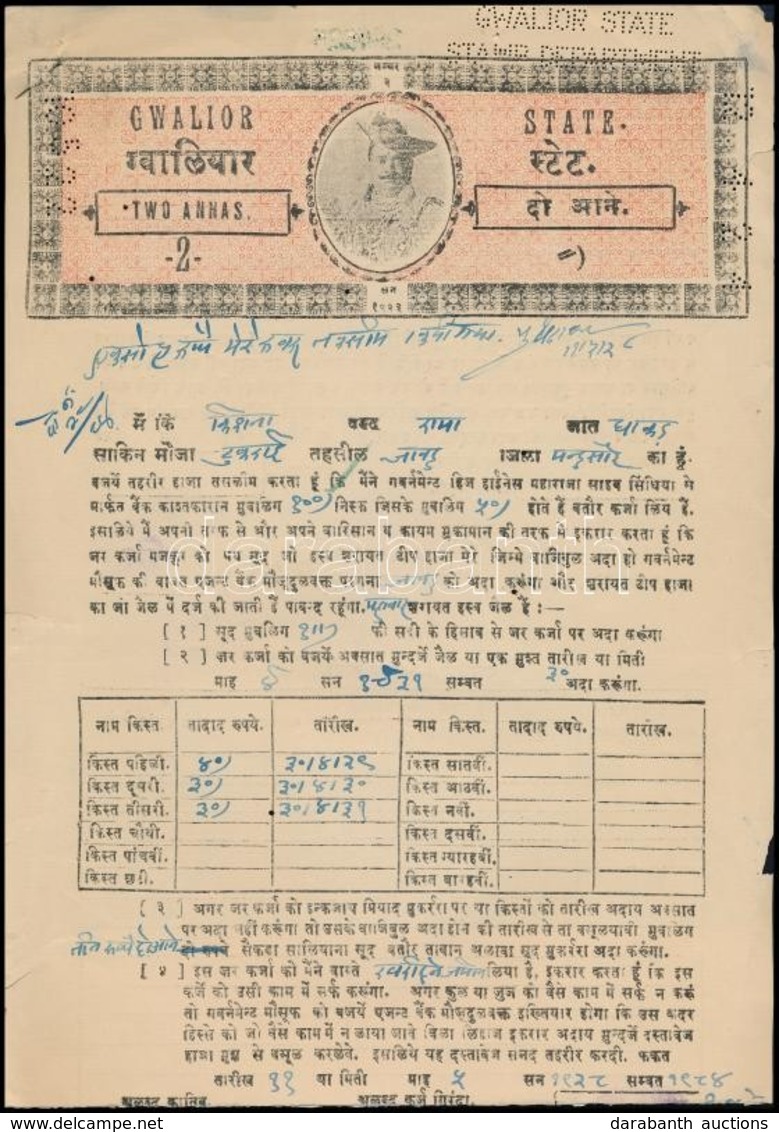 GWALIOR STATE
STAMP DEPARTMENT
नम्बर
२
GWALIOR STATE.
ग्वालियार स्टेट.
TWO ANNAS. दो आने.
-2-
सन
१९२३
में कि किशना वल्द रामा जात धाकड़
साकिन मौजा तहसील जावद ज़िला मन्दसौर का हूं.
बजर्ये तहरीर हाजा तसलीम करता हूं कि मैंने गवर्नमेन्ट हिज हाईनेस महाराजा साहब सिंधिया से
मार्फत बैंक काश्तकारान मुबलिग १००) निस्फ जिसके मुबलिग ५०) होते हैं बतौर कर्जा लिये हैं.
इसलिये मैं अपनी तरफ से और अपने वारिसान व कायम मुकामान की तरफ से इकरार करता हूं कि
जर कर्जा मजकूर को मय सूद जो हस्ब शरायत टीप हाजा मेरे जिम्मे वाजिबुल अदा हो गवर्नमेन्ट
मौसूफ की वास्ते एजन्ट बैंक मौजूदुलवक्त परगना जावद को अदा करूंगा और शरायत टीप हाजा
का जो जैल में दर्ज की जाती हैं पाबन्द रहूंगा. शरायत हस्ब जैल हैं :—
[ १ ] सूद मुबलिग की सदी के हिसाब से जर कर्जा पर अदा करूंगा
[ २ ] ज़र कर्जा को बजर्ये अक्सात मुन्दर्जे जैल या एक मुश्त तारीख या मिती ३०
माह ४ सन १९३१ सम्बत अदा करूंगा.
नाम किस्त. तादाद रुपये. तारीख. नाम किस्त. तादाद रुपये. तारीख.
किस्त पहिली. ४०) ३०।४।२९ किस्त सातवीं.
किस्त दूसरी. ३०) ३०।४।३० किस्त आठवीं.
किस्त तीसरी. ३०) ३०।४।३१ किस्त नवीं.
किस्त चौथी. किस्त दसवीं.
किस्त पांचवीं. किस्त ग्यारहवीं.
किस्त छठी. किस्त बारहवीं.
[ ३ ] अगर जर कर्जा को इन्कजाय मियाद मुकर्ररा पर या किस्तों को तारीख अदाय अक्सात
पर अदा नहीं करूंगा तो उसके वाजिबुल अदा होने की तारीख से ता वसूलयाबी मुबलिग
सैकड़ा सालियाना सूद बतौर तावान अलावा सूद मुकर्ररा अदा करूंगा.
[ ४ ] इस जर कर्जा को मैंने वास्ते लिया है, इकरार करता हूं कि इस
कर्जे को उसी काम में सर्फ करूंगा. अगर कुल या जुज को वैसे काम में सर्फ न करूं
तो गवर्नमेन्ट मौसूफ को बजर्ये एजन्ट बैंक मौजूदुलवक्त इख्तियार होगा कि उस कदर
हिस्से को जो वैसे काम में न लाया जावे बिला लिहाज इकरार अदाय मुन्दर्जे दस्तावेज
हाजा मुझ से वसूल करलेवे. इसलिये यह दस्तावेज सनद तहरीर करदी. फकत
तारीख ११ या मिती माह ५ सन १९२८ सम्बत १९८४
अलब्द कातिब. अलब्द कर्ज गिरंदा.
darabanth
www.delcampe.net darabanth auctions